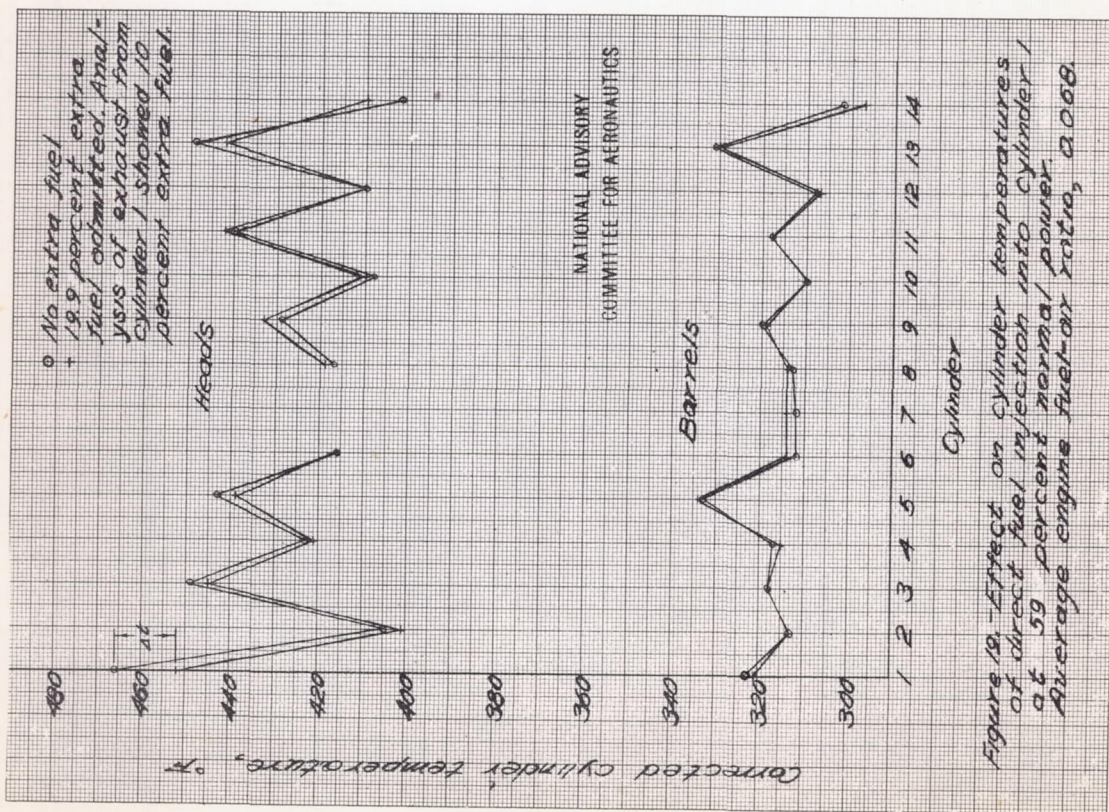 o No extra fuel
+ 19.9 percent extra
fuel admitted. Anal-
ysis of exhaust from
cylinder 1 showed 10
percent extra fuel.
Heads
Δt
NATIONAL ADVISORY
COMMITTEE FOR AERONAUTICS
Barrels
480
460
440
420
400
380
360
340
320
300
Corrected cylinder temperature, °F
1 2 3 4 5 6 7 8 9 10 11 12 13 14
Cylinder
Figure 19.-Effect on cylinder temperatures
of direct fuel injection into cylinder 1
at 59 percent normal power.
Average engine fuel-air ratio, 0.068.